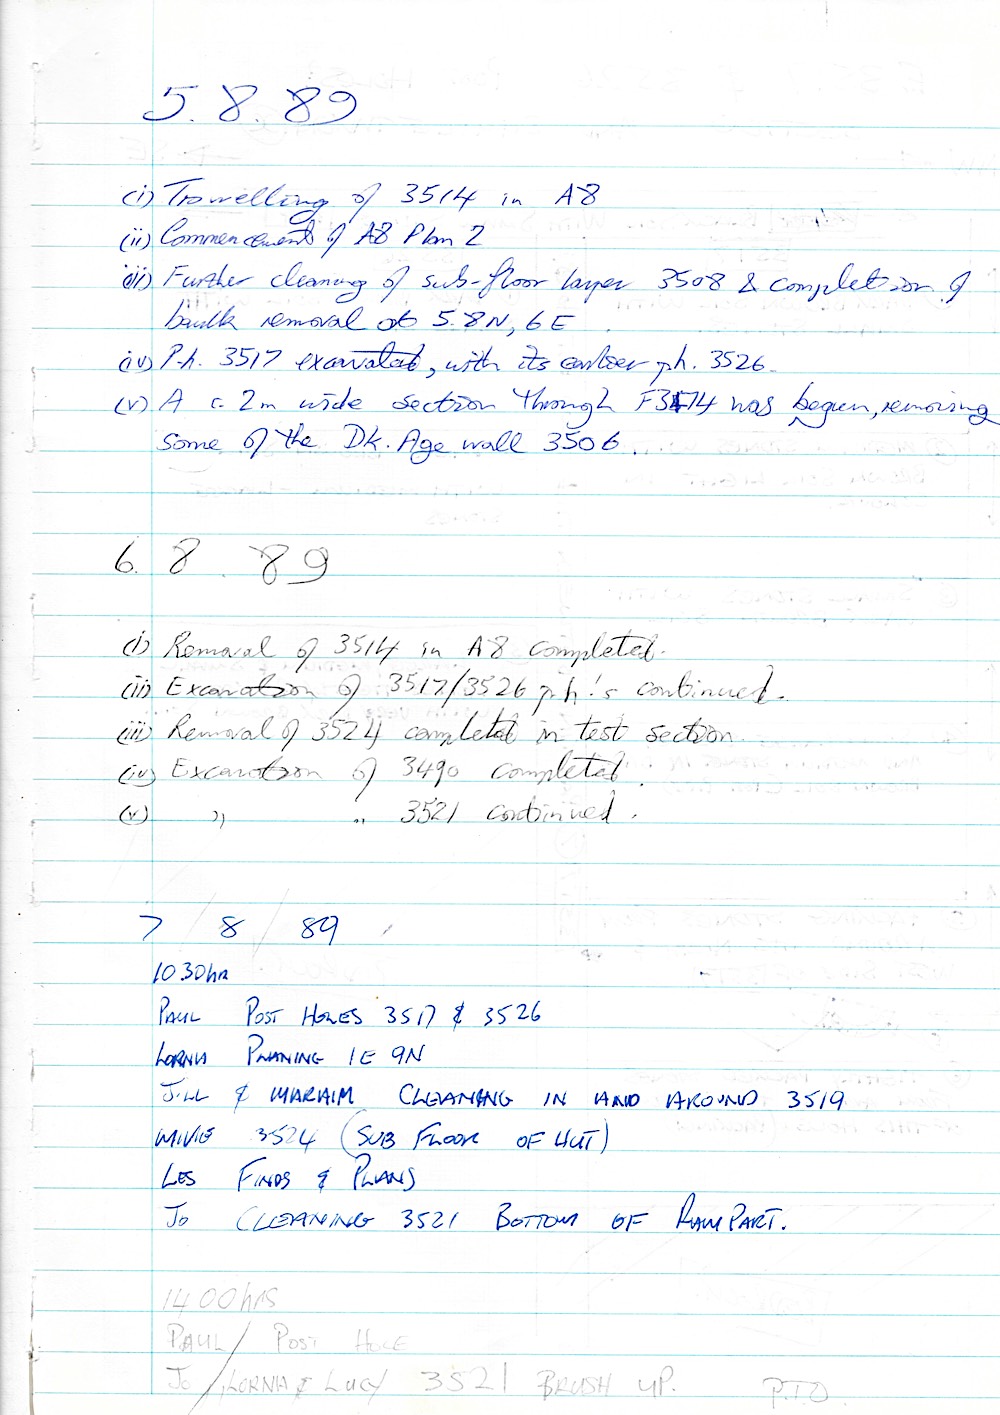 5.8.89
(i) Trowelling of 3514 in A8
(ii) Commencement of A8 Plan 2
(iii) Further cleaning of sub-floor layer 3508 & completion of
baulk removal at 5.8N, 6E.
(iv) P.h. 3517 excavated, with its earlier p.h. 3526.
(v) A c. 2m wide section through F3474 was begun, removing
some of the Dk. Age wall 3506.
6. 8. 89
(i) Removal of 3514 in A8 completed.
(ii) Excavation of 3517/3526 p.h.'s continued.
(iii) Removal of 3524 completed in test section.
(iv) Excavation of 3490 completed.
(v) " " 3521 continued.
7/8/89
1030hr
PAUL POST HOLES 3517 & 3526
LORNA PLANING 1E 9N
JILL & MARAIM CLEANING IN AND AROUND 3519
3524 (SUB FLOOR OF HUT)
LES FINDS & PLANS
JO CLEANING 3521 BOTTOM OF RAMPART.
1400hrs
PAUL/ POST HOLE
JO/LORNA & LUCY 3521 BRUSH UP. P.T.O